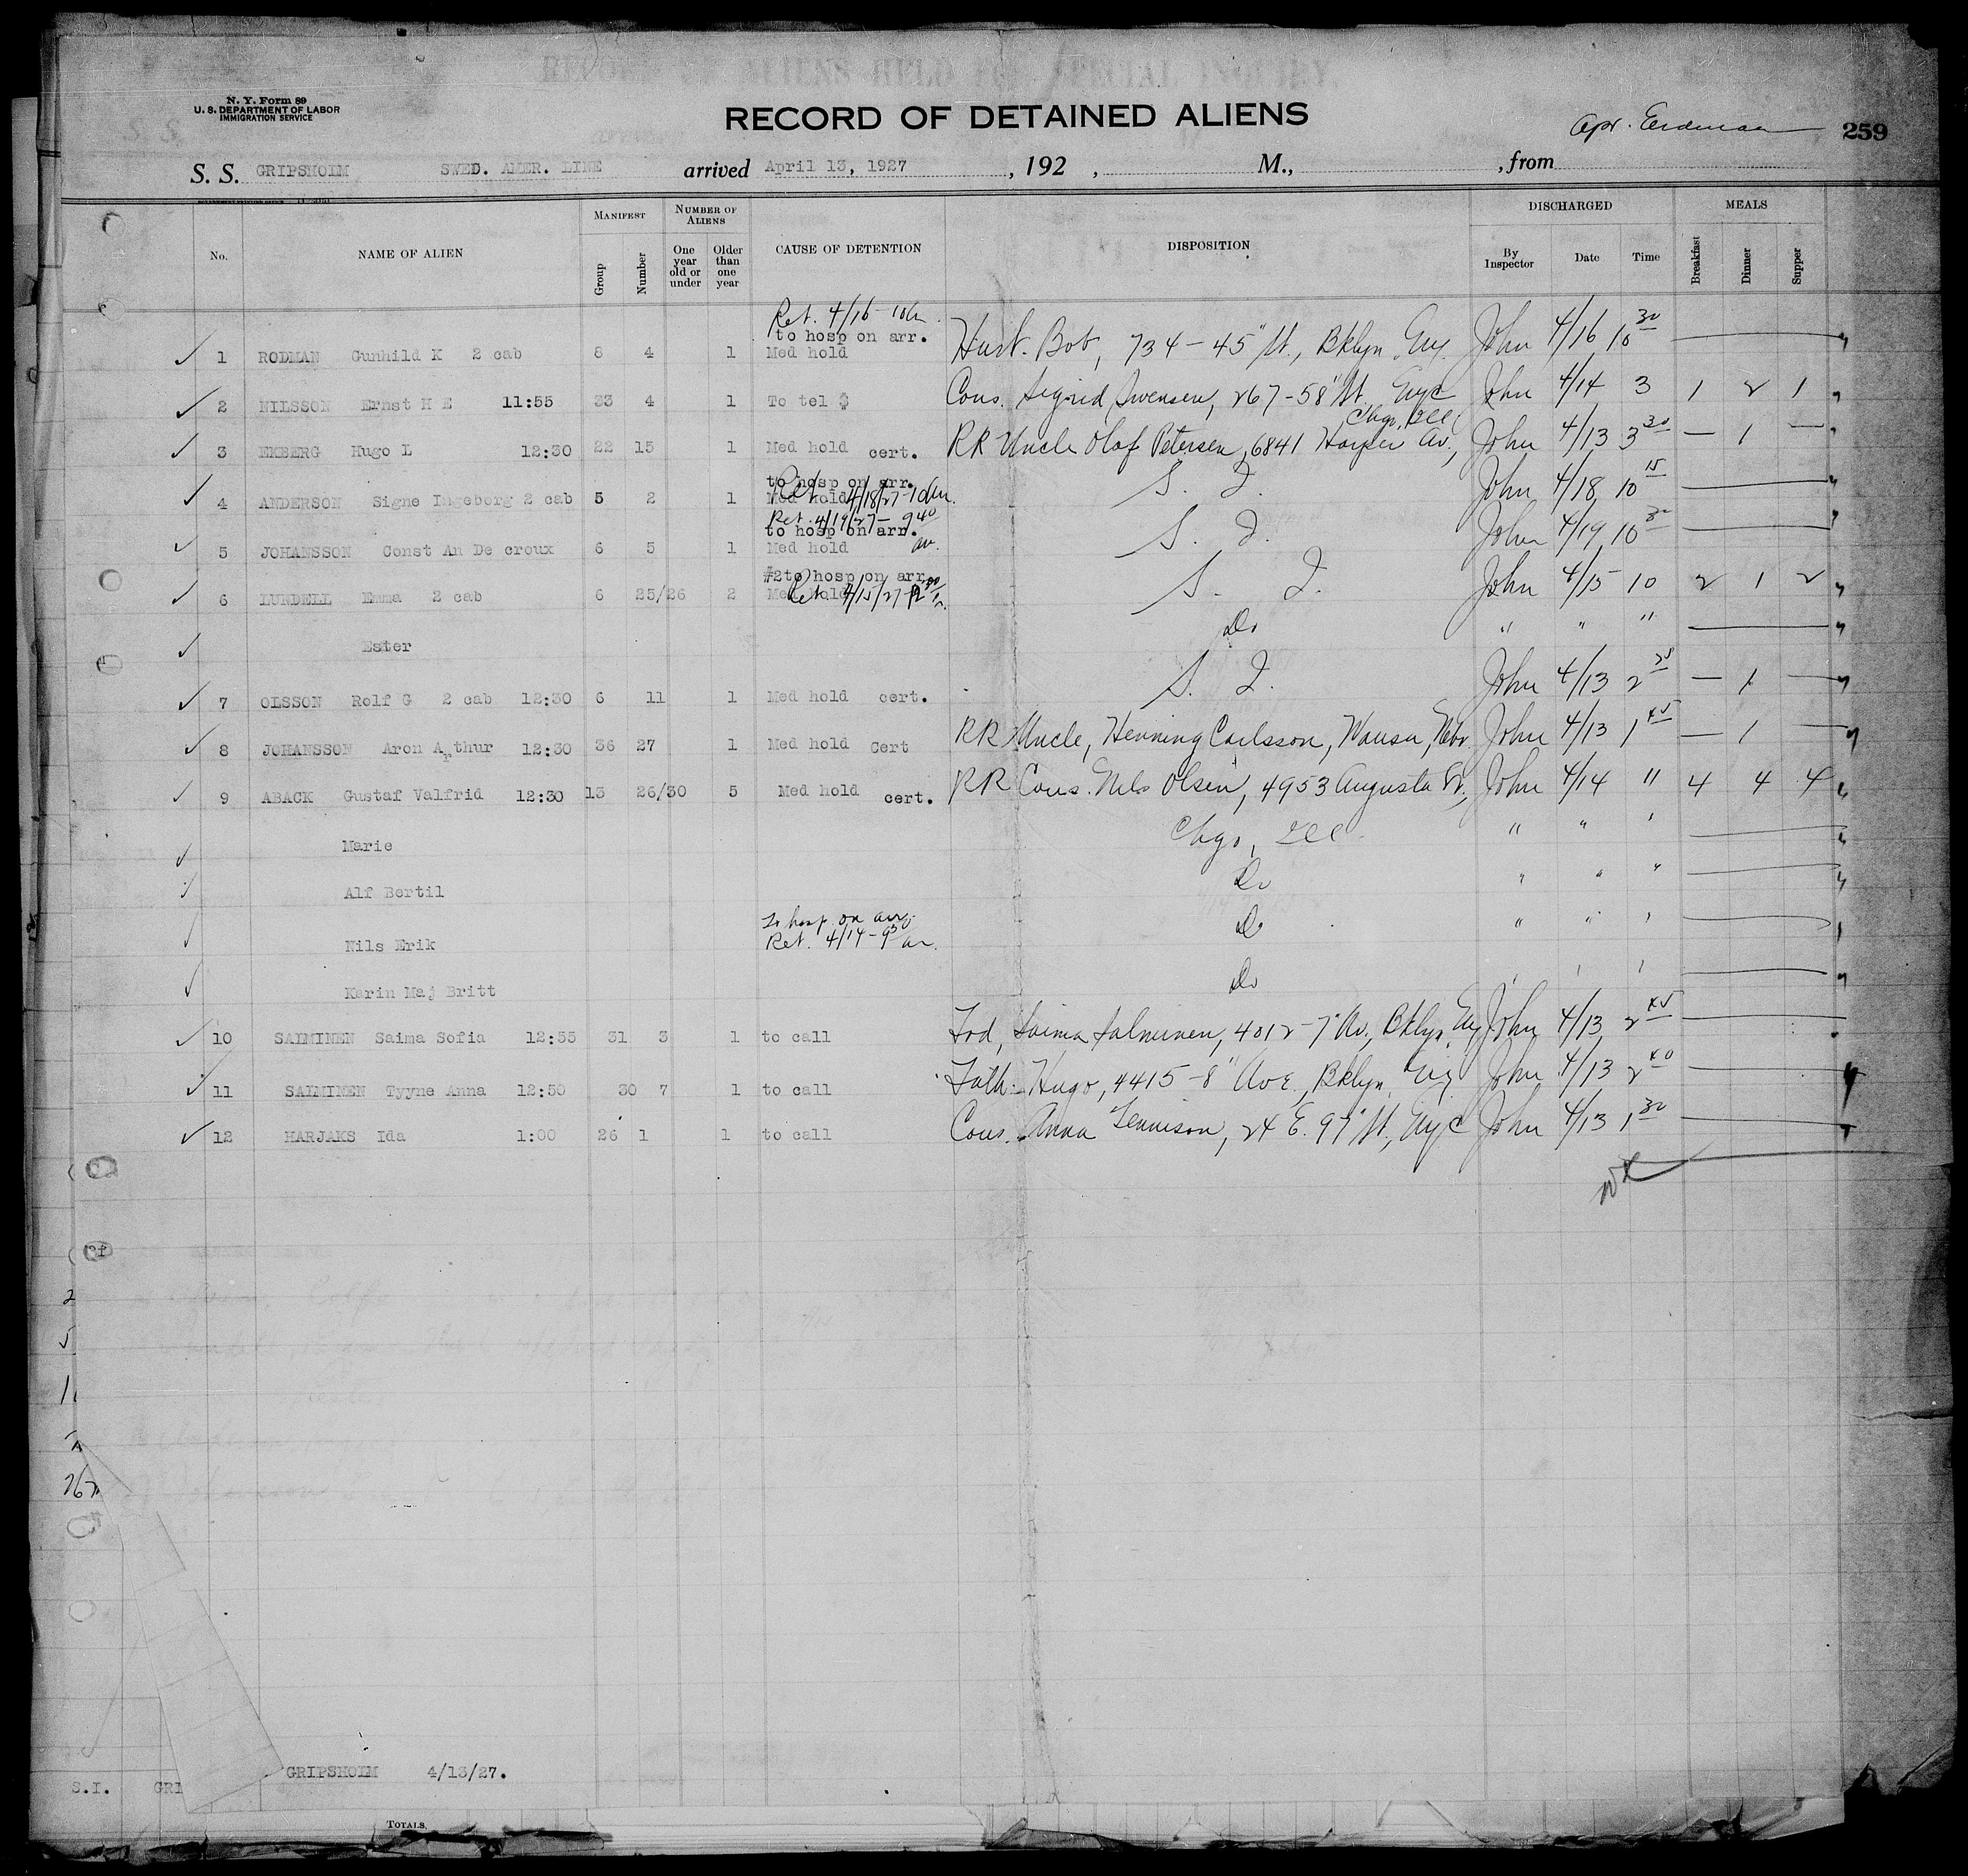 RECORD OF ALIENS HELD FOR SPECIAL INQUIRY
N. Y. Form 89
U. S. DEPARTMENT OF LABOR
IMMIGRATION SERVICE
RECORD OF DETAINED ALIENS
259
S. S. GRIPSHOIM SWED. AMER. LINE arrived April 13, 1927 , 192 , M., , from
No. NAME OF ALIEN MANIFEST Group Number NUMBER OF ALIENS One year old or under Older than one year CAUSE OF DETENTION DISPOSITION DISCHARGED By Inspector Date Time MEALS Breakfast Dinner Supper
Ret. 4/16 - 10
to hosp on arr.
1 RODMAN Gunhild K 2 cab 8 4 1 Med hold Husb. Bob, 734 - 45" St., Bklyn, Ny. John 4/16 10 30
2 NILSSON Ernst H E 11:55 33 4 1 To tel $ Cous. Sigrid Swensen, 267 - 58" St NyC John 4/14 3 1 2 1
Chgo, Ill
3 EKBERG Hugo L 12:30 22 15 1 Med hold cert. RR Uncle Olof Petersen, 6841 Harper Av., John 4/13 3 30 — 1 —
to hosp on arr.
4 ANDERSON Signe Ingeborg 2 cab 5 2 1 Med hold Ret. 4/18/27 - 10 am. S. I. John 4/18 10 15
Ret. 4/19/27 - 9 40 am.
to hosp on arr.
5 JOHANSSON Const An De croux 6 5 1 Med hold S. I. John 4/19 10 30
#2 to hosp on arr.
6 LUNDELL Emma 2 cab 6 25/26 2 Med hold Ret. 4/15/27 S. I. John 4/15 10 2 1 2
Ester Do " " "
7 OLSSON Rolf G 2 cab 12:30 6 11 1 Med hold cert. S. I. John 4/13 2 — 1 —
8 JOHANSSON Aron Arthur 12:30 36 27 1 Med hold Cert RR Uncle, Henning Carlsson, Wausa, Nebr John 4/13 1 45 — 1 —
9 ABACK Gustaf Valfrid 12:30 13 26/30 5 Med hold cert. RR Cous. Nils Olsen, 4953 Augusta St., John 4/14 " 4 4 4
Marie Chgo, Ill " " '
Alf Bertil Do " " "
To hosp on arr.
Nils Erik Ret. 4/14 - 9 30 am. Do " " '
Karin Maj Britt Do ' ' '
10 SALMINEN Saima Sofia 12:55 31 3 1 to call Frd, Saima Salminen, 4012 - 7" Av., Bklyn, Ny John 4/13 2 45
11 SALMINEN Tyyne Anna 12:50 30 7 1 to call Fath. Hugo, 4415 - 8" Ave, Bklyn, Ny John 4/13 2 40
12 HARJAKS Ida 1:00 26 1 1 to call Cous. Anna Tennison, 24 E. 97" St., NyC John 4/13 1 30
2
5
S.I. GRI GRIPSHOIM 4/13/27.
TOTALS,